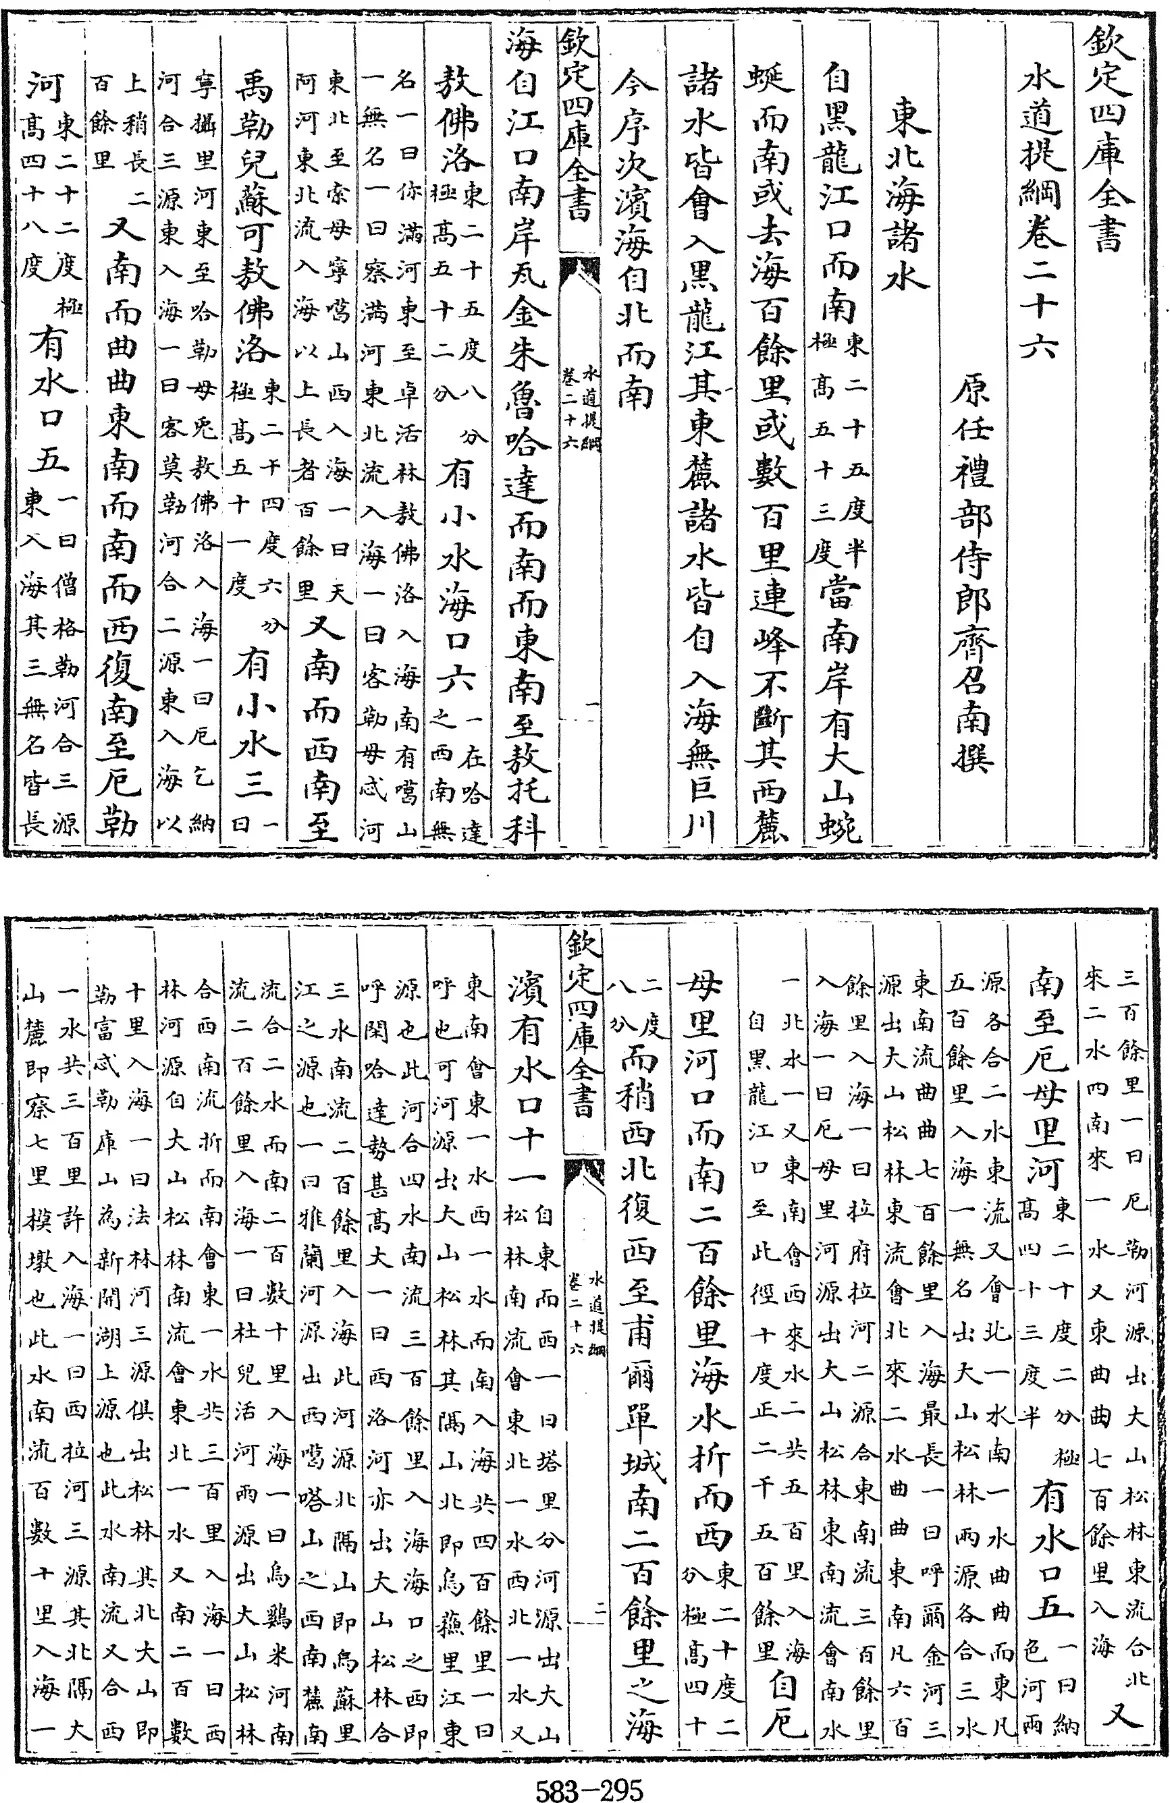 欽定四庫全書
水道提綱卷二十六
原任禮部侍郎齊召南撰
東北海諸水
自黑龍江口而南東二十五度半極高五十三度當南岸有大山蜿
蜒而南或去海百餘里或數百里連峰不斷其西麓
諸水皆會入黑龍江其東麓諸水皆自入海無巨川
今序次濱海自北而南
欽定四庫全書 水道提綱卷二十六 一
海自江口南岸瓦金朱魯哈達而南而東南至敖托科
敖佛洛東二十五度八分極高五十二分有小水海口六一在哈達之西南無
名一曰你滿河東至卓活林敖佛洛入海南有噶山
一無名一曰察滿河東北流入海一曰客勒母忒河
東北至索母寧噶山西入海一曰天阿河東北流入海以上長者百餘里又南而西南至
禹勒兒蘇可敖佛洛東二十四度六分極高五十一度有小水三一曰
寧攝里河東至哈勒母兎敖佛洛入海一曰厄乞納
河合三源東入海一曰客莫勒河合二源東入海以
上稍長二百餘里又南而曲曲東南而南而西復南至厄勒
河東二十二度極高四十八度有水口五一曰僧格勒河合三源東入海其三無名皆長
三百餘里一曰厄勒河源出大山松林東流合北來二水四南來一水又東曲曲七百餘里入海又
南至厄母里河東二十度二分極高四十三度半有水口五一曰納色河兩
源各合二水東流又會北一水南一水曲曲而東凡
五百餘里入海一無名出大山松林兩源各合三水
東南流曲曲七百餘里入海最長一曰呼爾金河三
源出大山松林東流會北來二水曲曲東南凡六百
餘里入海一曰拉府拉河二源合東南流三百餘里
入海一曰厄母里河源出大山松林東南流會南水
一北水一又東南會西來水二共五百里入海自黑龍江口至此徑十度正二千五百餘里自厄
母里河口而南二百餘里海水折而西東二十度二分極高四十
二度八分而稍西北復西至甫爾單城南二百餘里之海
欽定四庫全書 水道提綱卷二十六 二
濱有水口十一自東而西一曰塔里分河源出大山松林南流會東北一水西北一水又
東南會東一水西一水而南入海共四百餘里一曰
呼也可河源出大山松林其隅山北即烏蘇里江東
源也此河合四水南流三百餘里入海海口之西即
呼閑哈達勢甚高大一曰西洛河亦出大山松林合
三水南流二百餘里入海此河源北隅山即烏蘇里
江之源也一曰雅蘭河源出西噶嗒山之西南麓南
流合二水而南二百數十里入海一曰烏鷄米河南
流二百餘里入海一曰杜兒活河兩源出大山松林
合西南流折而南會東一水共三百里入海一曰西
林河源自大山松林南流會東北一水又南二百數
十里入海一曰法林河三源俱出松林其北大山即
勒富忒勒庫山為新開湖上源也此水南流又合西
一水共三百里許入海一曰西拉河三源其北隅大
山麓即察七里模墩也此水南流百數十里入海一
583-295